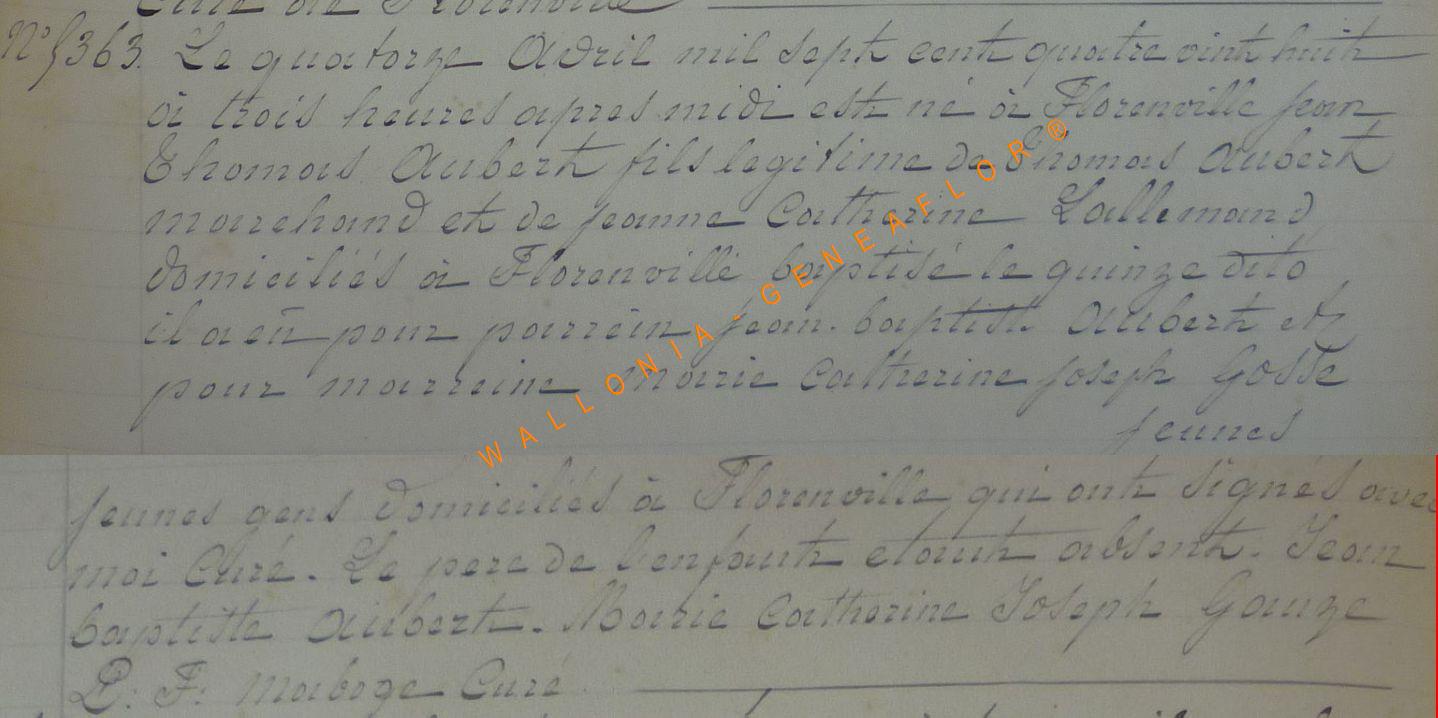 Curé de Florenville
N° 5363. Le quatorze Avril mil sept cent quatre vint huit
à trois heures apres midi est né à Florenville jean
Thomas Aubert fils legitime de Thomas Aubert
marchand et de jeanne Catherine Lallemand
domiciliés à Florenville baptisé le quinze dito
il a eü pour parrein jean. baptiste Aubert et
pour marreine Marie Catherine joseph Gosse
jeunes
jeunes gens domiciliés à Florenville qui ont signés avec
moi Curé. Le pere de l'enfant etant absent. Jean
baptiste Aubert. Marie Catherine Joseph Gauze
P. F. Maboge Curé
WALLONIA-GENEAFLOR®